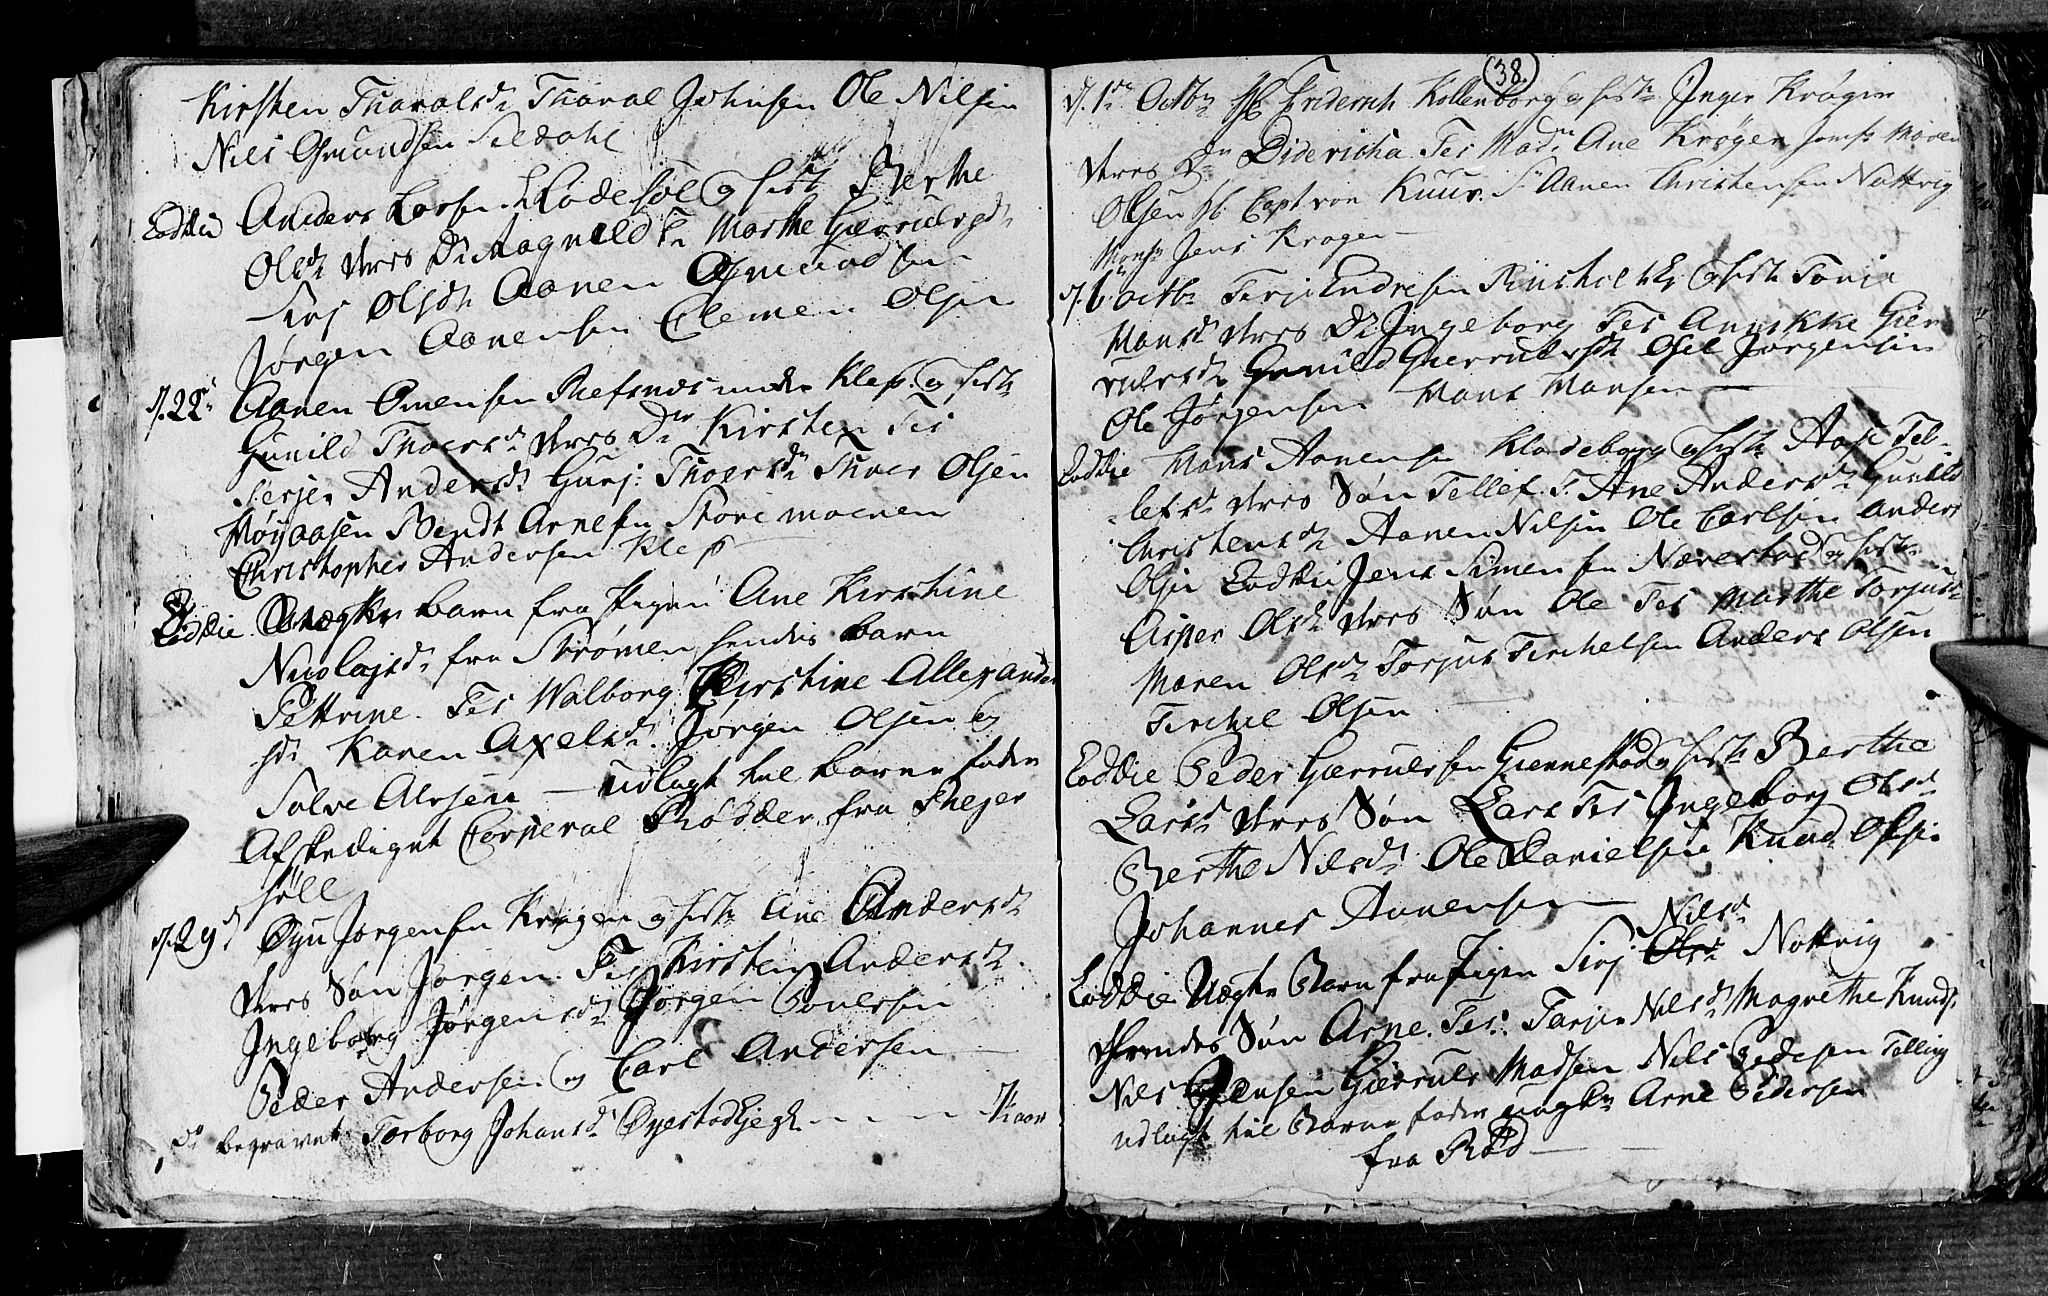 Kirsten Tharalsd: Tharal Johnsen Ole Nilsen
Nils Osmundsen Seldahl
Eoddie Anders Larsen Lladesøl og hust: Berthe
Olsd: deres D: Magnild T: Marthe Gierrulsd:
Sirj Olsd: Aanen Osmundsen
Jørgen Aanensen Clemen Olsen
d. 22: Aanen Omensen Refsnæs under Klep og hust:
Gunild Thoersd: deres Dr Kirsten Tes
Terjer Andersd: Gurj: Thoersd: Thoer Olsen
Høyaasen Bendt Arnesn Storemoenen
Christopher Andersen Klep
Eoddie Uægte barn fra pigen Ane Kirstine
Nicolajsd: fra Strømen hendes barn
Pettrine. Tes Walborg Kirstine Allexander
sd: Karen Axelsd: Jørgen Olsen og
Salve Alvsen — udlagt til barne fader
Afskediget Corperal Rødder fra Phejer
søll
d. 29d Øyu Jørgensen Kragen og hust: Ane Andersd:
deres Søn Jørgen. Tes Kirsten Andersd:
Ingeborg Jørgensd: Jørgen Povelsen
Peder Andersen og Carl Andersen —
d: begravet Torborg Johansd: Øyestad — — — 7 aar
38.
d. 1de Octbr Hr Friderich Kallenborg og hust: Inger Krøger
deres Dr Didericha Tes Madm Ane Krøger Jomfr Maren
Olsen Hr Capt von Kuur. Sr Aanen Christensen Nattvig
Monsr Jens Kragen —
d. 6 octbr Terje Endresen Rinsholt og hust: Tonje
Hansd: deres Dr Ingeborg Tes Annikke Gier
rulsd: Gunild Gierrulsd: Osel Jørgensen
Ole Jørgensen Hans Hansen —
Eoddie Hans Aanensen Kladeborg og hust: Aase Tel
lefsd: deres Søn Tellef. T: Ane Andersd: Gunild
Christensd: Aanen Nilsen Ole Carlsen Anders
Olsen Eoddie Jens Simensen Nærestad og hust:
Asper Olsd: deres Søn Ole Tes Marthe Torjusd:
Maren Olsd: Torjus Terchelsen Anders Olsen
Terchel Olsen
Eoddie Peder Gierrulsen Giennestad og hust: Berthe
Larsd: deres Søn Lars Tes Ingeborg Olsd:
Berthe Nilsd: Ole Danielsen Knud Olsen
Johannes Aanensen —
Nilsd:
Eoddie Uægte Barn fra pigen Sirj Olsd: Nattvig
hendes Søn Arne. Tes: Tarjer Nilsd: Magrethe Knuds
Nils Jensen Gierruls Madsen Nils Pedersen Telling
udlagt til Barne fader ungkr Arne Pedersen
fra Rød —